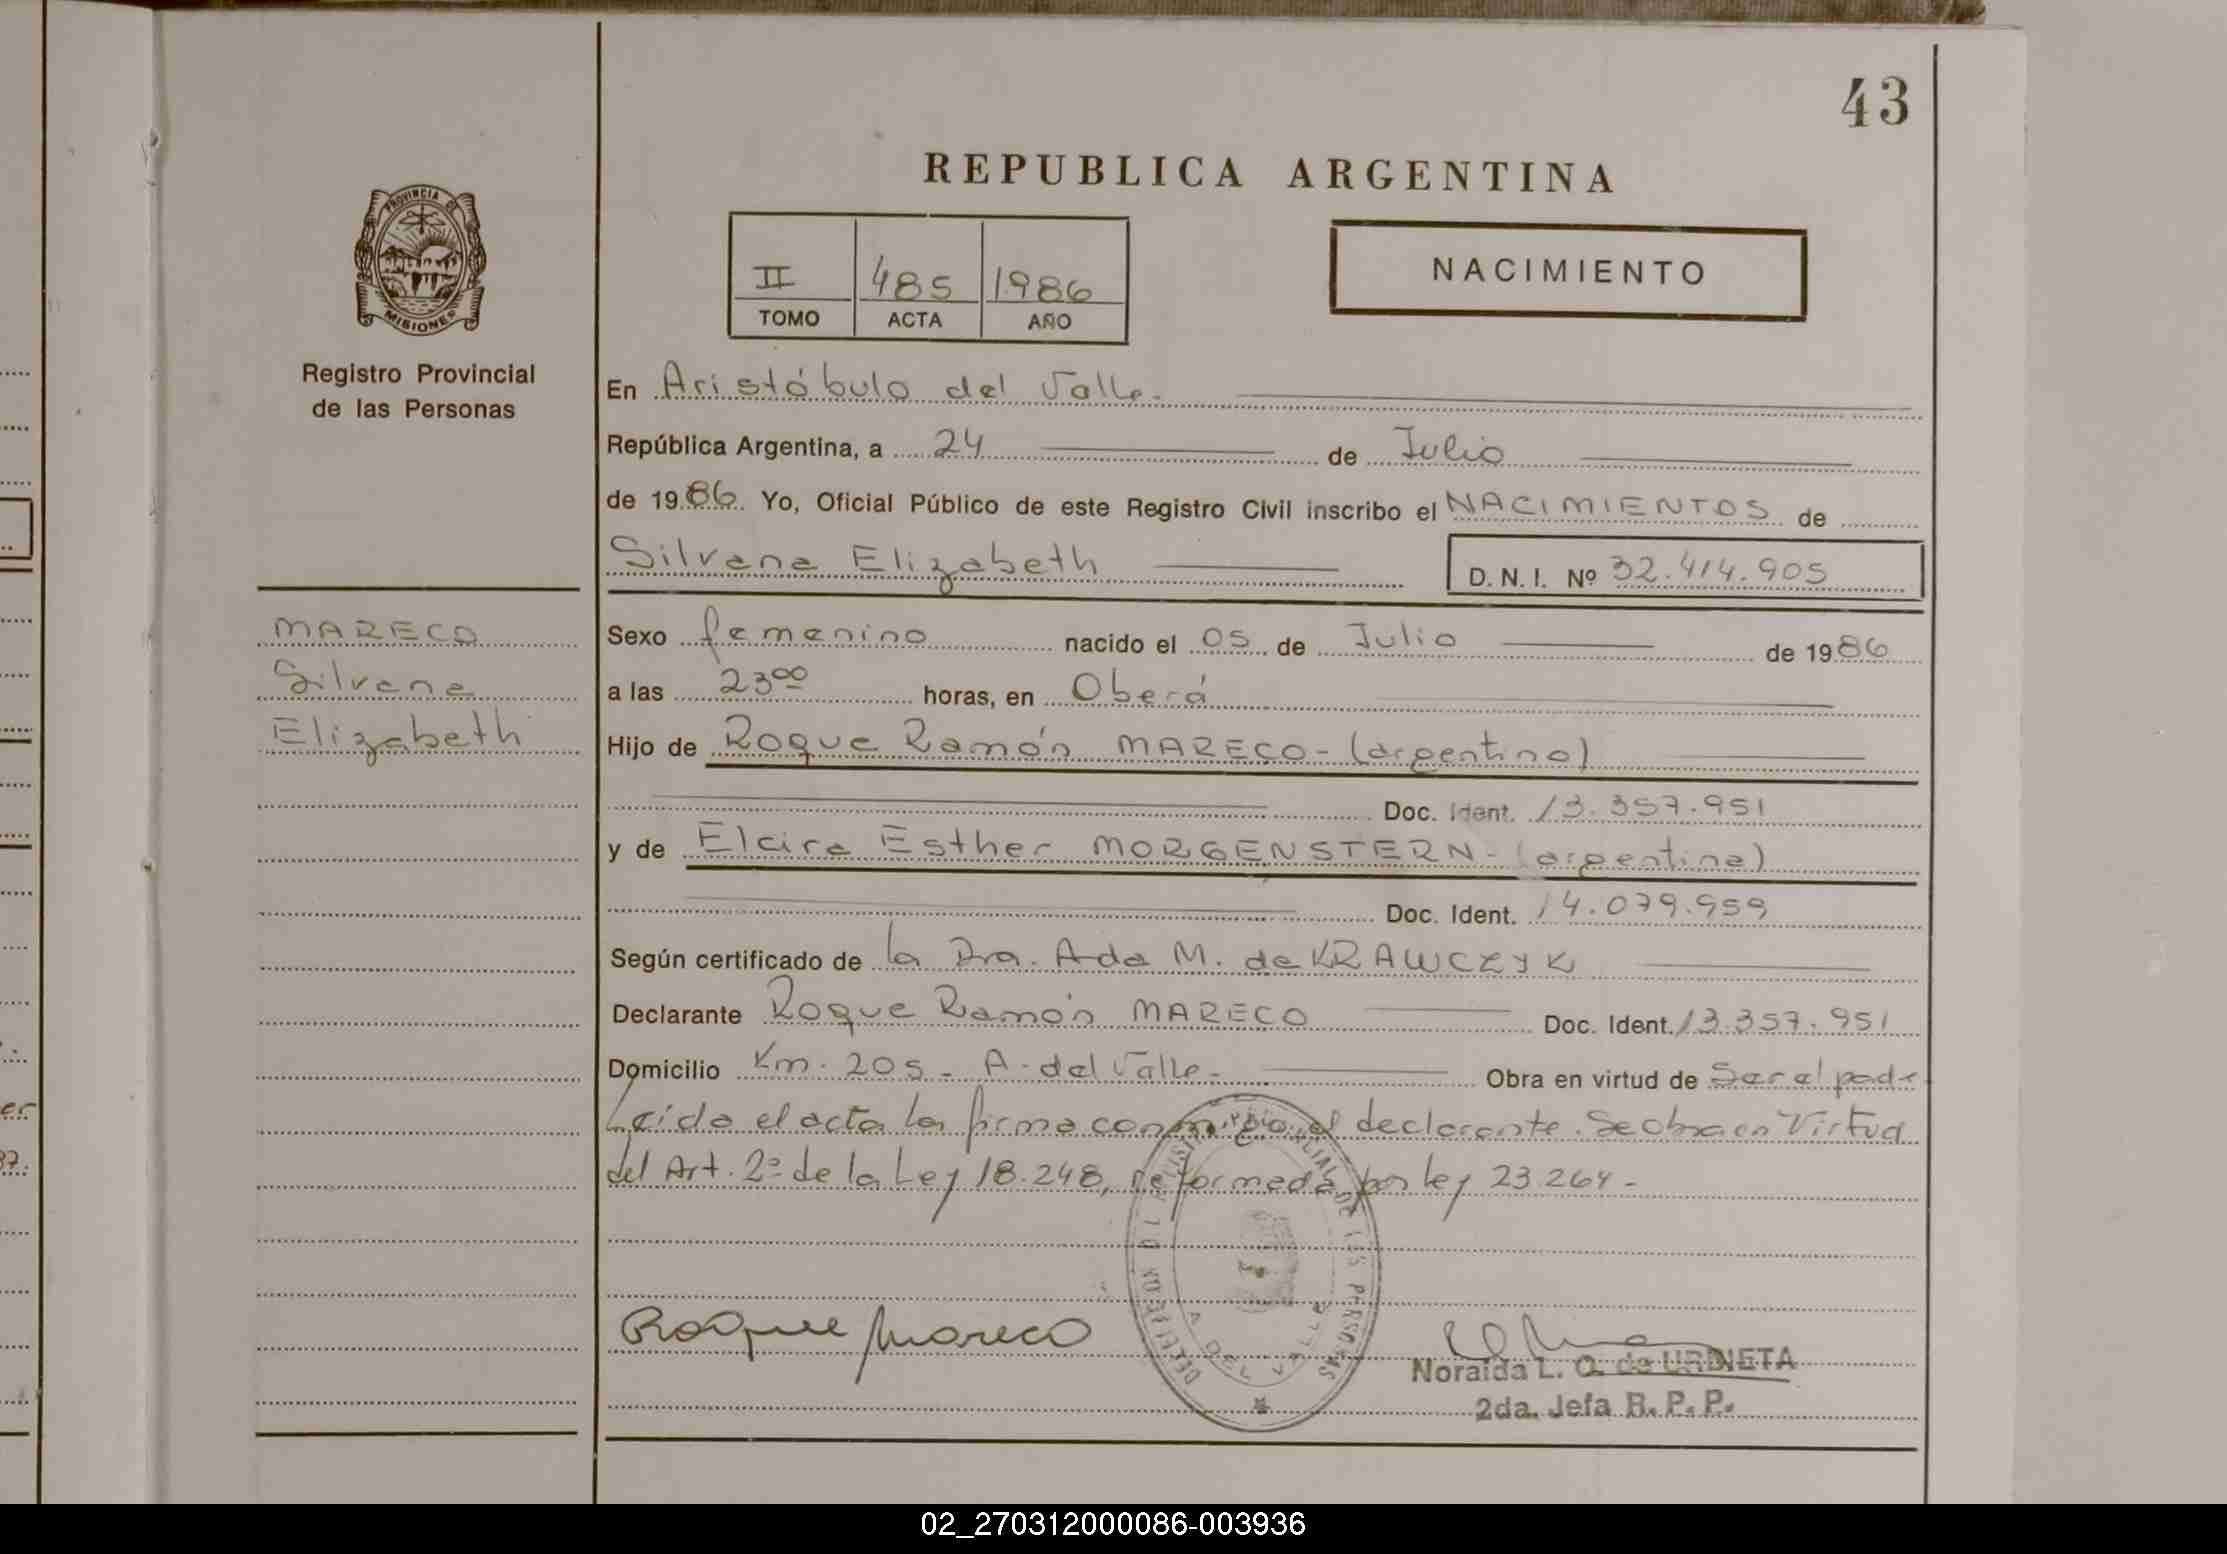 43
REPUBLICA ARGENTINA
PROVINCIA DE
MISIONES
Registro Provincial
de las Personas
II 485 1986
TOMO ACTA AÑO
NACIMIENTO
En Aristóbulo del Valle.
República Argentina, a 24 de Julio
de 1986. Yo, Oficial Público de este Registro Civil inscribo el NACIMIENTOS de
Silvana Elizabeth D. N. I. Nº 32.414.905
MARECO
Silvana
Elizabeth
Sexo femenino nacido el 05 de Julio de 1986
a las 23⁰⁰ horas, en Oberá
Hijo de Roque Ramón MARECO - (argentino)
Doc. Ident. 13.357.951
y de Elcira Esther MORGENSTERN - (argentina)
Doc. Ident. 14.079.959
Según certificado de la Dra. Ada M. de KRAWCZYK
Declarante Roque Ramón MARECO Doc. Ident. 13.357.951
Domicilio Km. 205 - A. del Valle - Obra en virtud de Ser el padre
Leída el acta la firma conmigo el declarante. Se obra en Virtud
del Art. 2º de la Ley 18.248, reformada por ley 23.264 -
DE LAS PERSONAS
A DEL VALLE
Roque Mareco
Noraida L. O. de URDIETA
2da. Jefa R. P. P.
er
87.
02_270312000086-003936